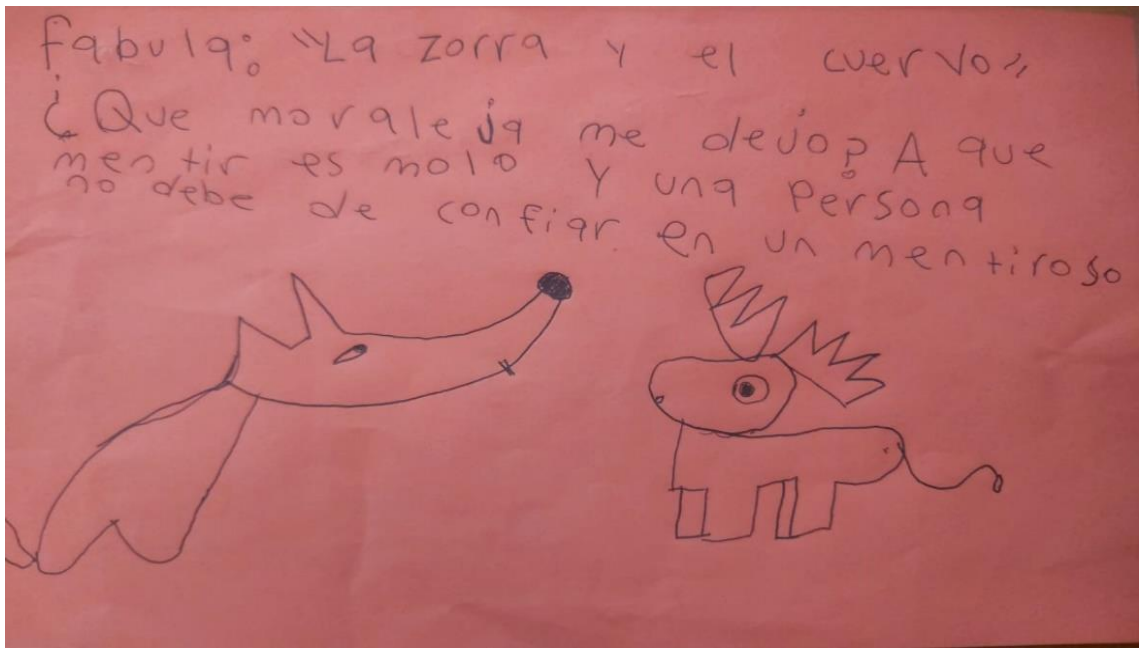 Fabula: "La zorra y el cuervo"
¿Que moraleja me dejo? A que
mentir es malo y una persona
no debe de confiar en un mentiroso